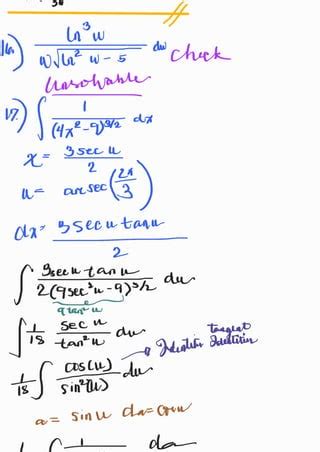 16.) ln³ w / w√(ln² w - 5) dw Check
Unsolvable
17.) ∫ 1 / (4x² - 9)^3/2 dx
x = 3 sec u / 2
u = arcsec(2x/3)
dx = 3 sec u tan u / 2
∫ 3 sec u tan u / 2(9 sec² u - 9)^3/2 du
9 tan² u
∫ 1/18 sec u / tan² u du
tangent
Identities
1/18 ∫ cos(u) / sin²(u) du
a = sin u da = cos u
∫ 1 da